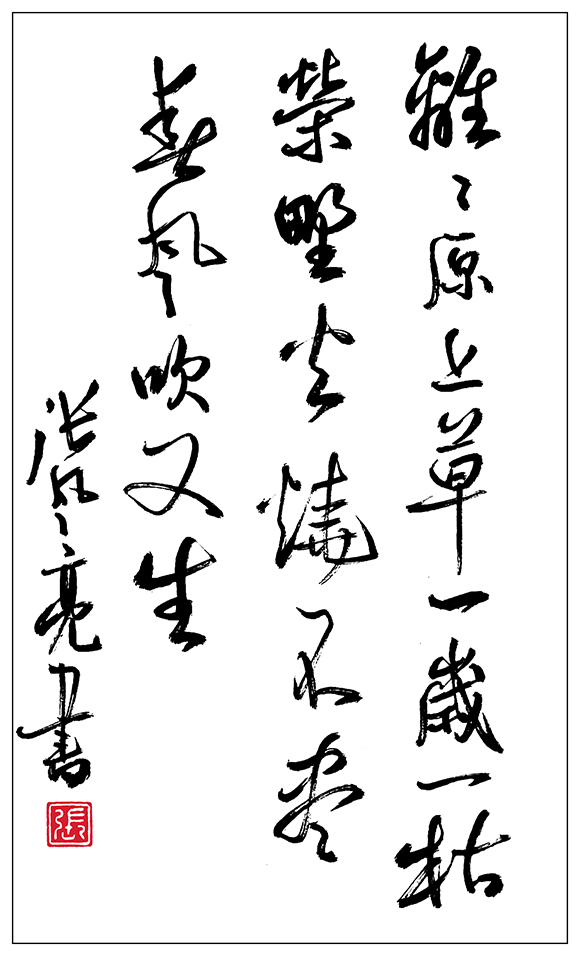 離〻原上草一歲一枯
榮野火燒不盡
春風吹又生
張風亮書
張